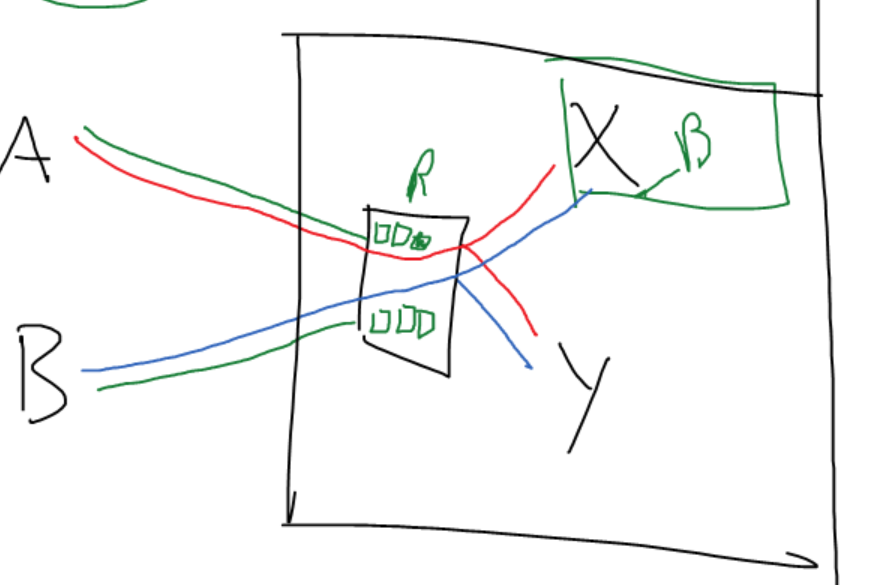 A
R
X B
B
Y